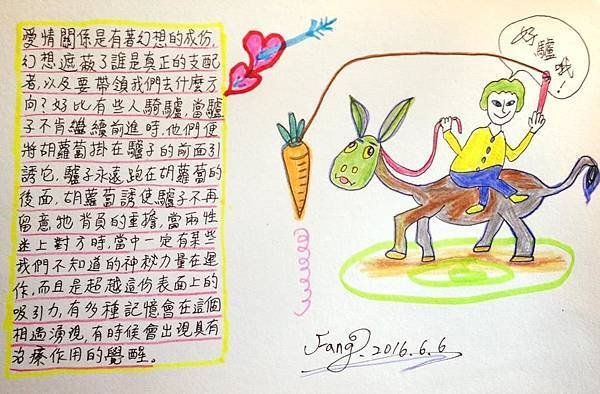 愛情關係是有著幻想的成份,
幻想遮蔽了誰是真正的支配
者,以及要帶領我們去什麼方
向?好比有些人騎驢,當驢
子不肯繼續前進時,他們便
將胡蘿蔔掛在驢子的前面引
誘它,驢子永遠跑在胡蘿蔔的
後面,胡蘿蔔誘使驢子不再
留意牠背負的重擔,當兩性
迷上對方時,當中一定有某些
我們不知道的神秘力量在運
作,而且是超越這份表面上的
吸引力,有多種記憶會在這個
相遇湧現,有時候會出現具有
治療作用的覺醒。
好驢哦!
Fang. 2016.6.6